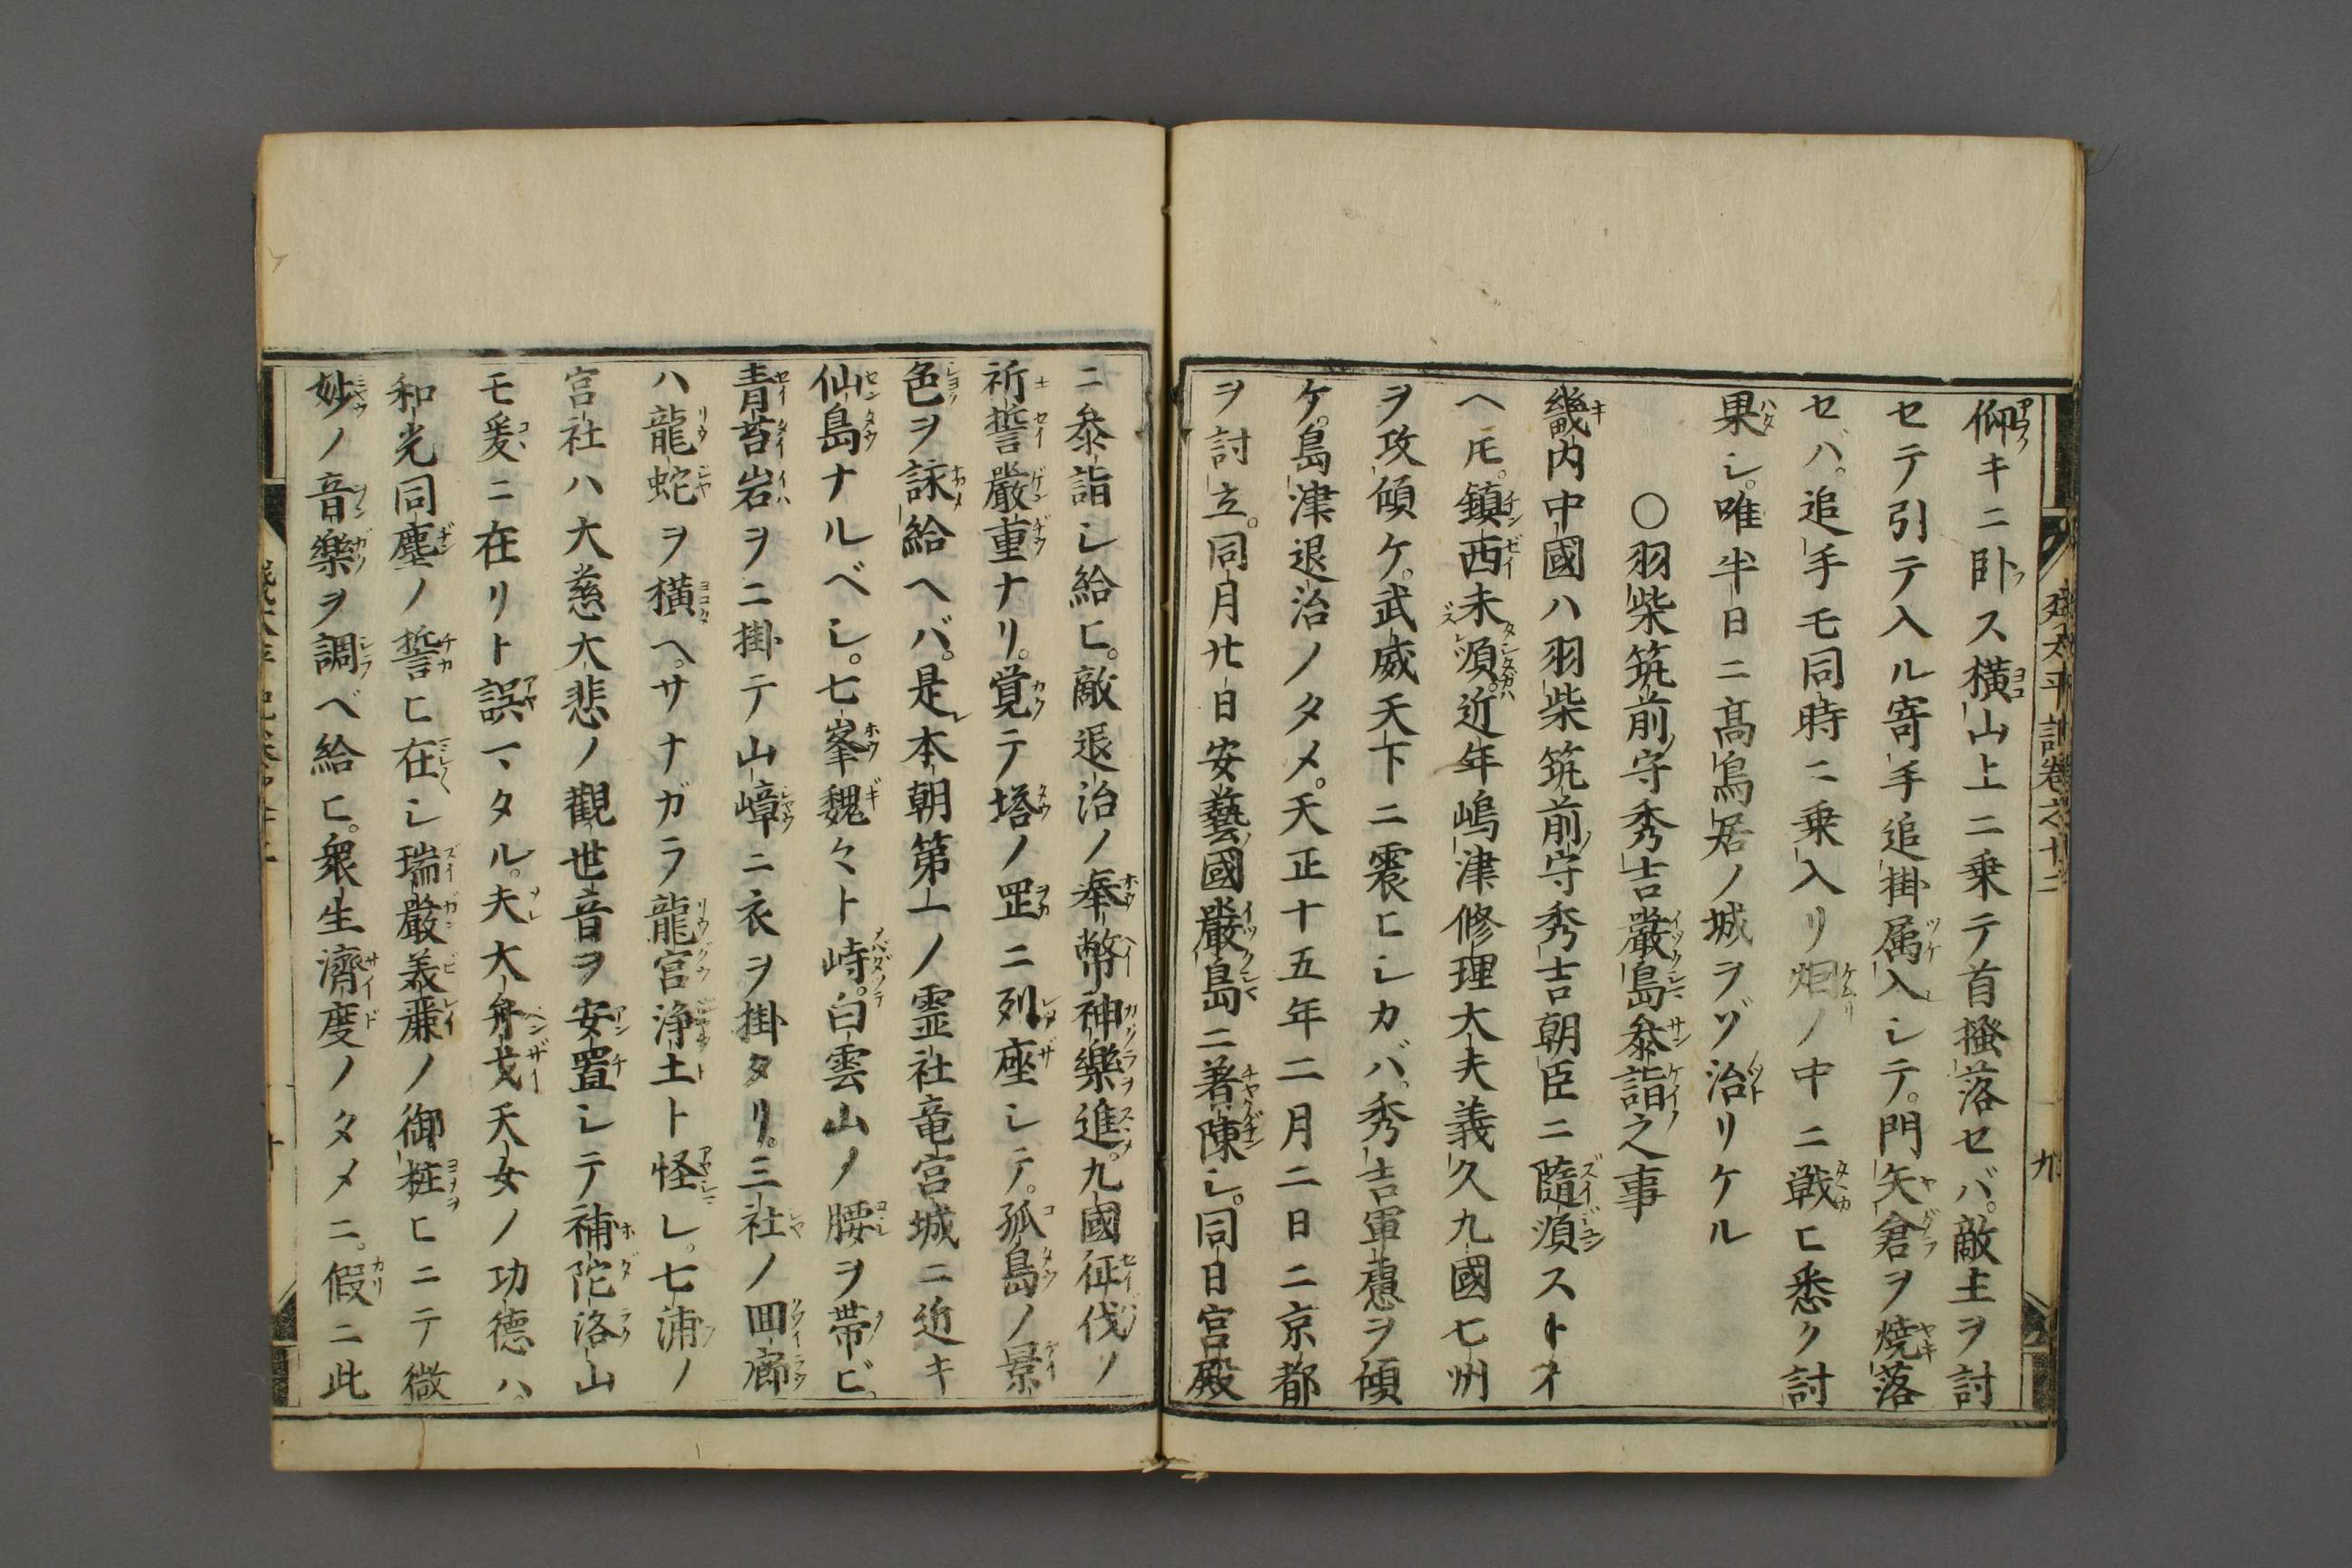 仰キニ卧ス横山上ニ乗テ首掻落セバ。敵主ヲ討
セテ引テ入ル寄手追掛属入シテ。門矢倉ヲ焼落
セバ。追手モ同時ニ乗入リ烟ノ中ニ戦ヒ悉ク討
果シ。唯半日ニ高鳥居ノ城ヲゾ治リケル
○羽柴筑前守秀吉嚴島叅詣之事
畿内中國ハ羽柴筑前守秀吉朝臣ニ隨順スト云
ヘ𪜈。鎮西未順。近年嶋津修理大夫義久九國七州
ヲ攻傾ケ。武威天下ニ震ヒシカバ。秀吉軍慮ヲ傾
ケ。島津退治ノタメ。天正十五年二月二日ニ京都
ヲ討立。同月廿日安藝國嚴島ニ著陳シ。同日宮殿
ニ叅詣シ給ヒ。敵退治ノ奉幣神樂進。九國征伐ノ
祈誓嚴重ナリ。覚テ塔ノ罡ニ列座シテ。孤島ノ景
色ヲ詠給ヘバ。是本朝第一ノ霊社竜宮城ニ近キ
仙島ナルベシ。七峯巍々ト峙。白雲山ノ腰ヲ帯ビ。
青苔岩ヲニ掛テ山嶂ニ衣ヲ掛タリ。三社ノ回廊
ハ龍蛇ヲ横ヘ。サナガラ龍宮浄土ト怪シ。七浦ノ
宮社ハ大慈大悲ノ觀世音ヲ安置シテ補陀洛山
モ爰ニ在リト誤マタル。夫大弁戈天女ノ功徳ハ。
和光同塵ノ誓ヒ在シ瑞嚴義𢋨ノ御粧ヒニテ微
妙ノ音樂ヲ調ベ給ヒ。衆生濟度ノタメニ。假ニ此
太平記巻之廿二
九